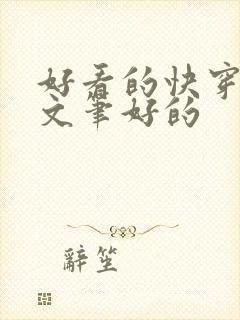 好看的快穿
文笔好的
辞笙